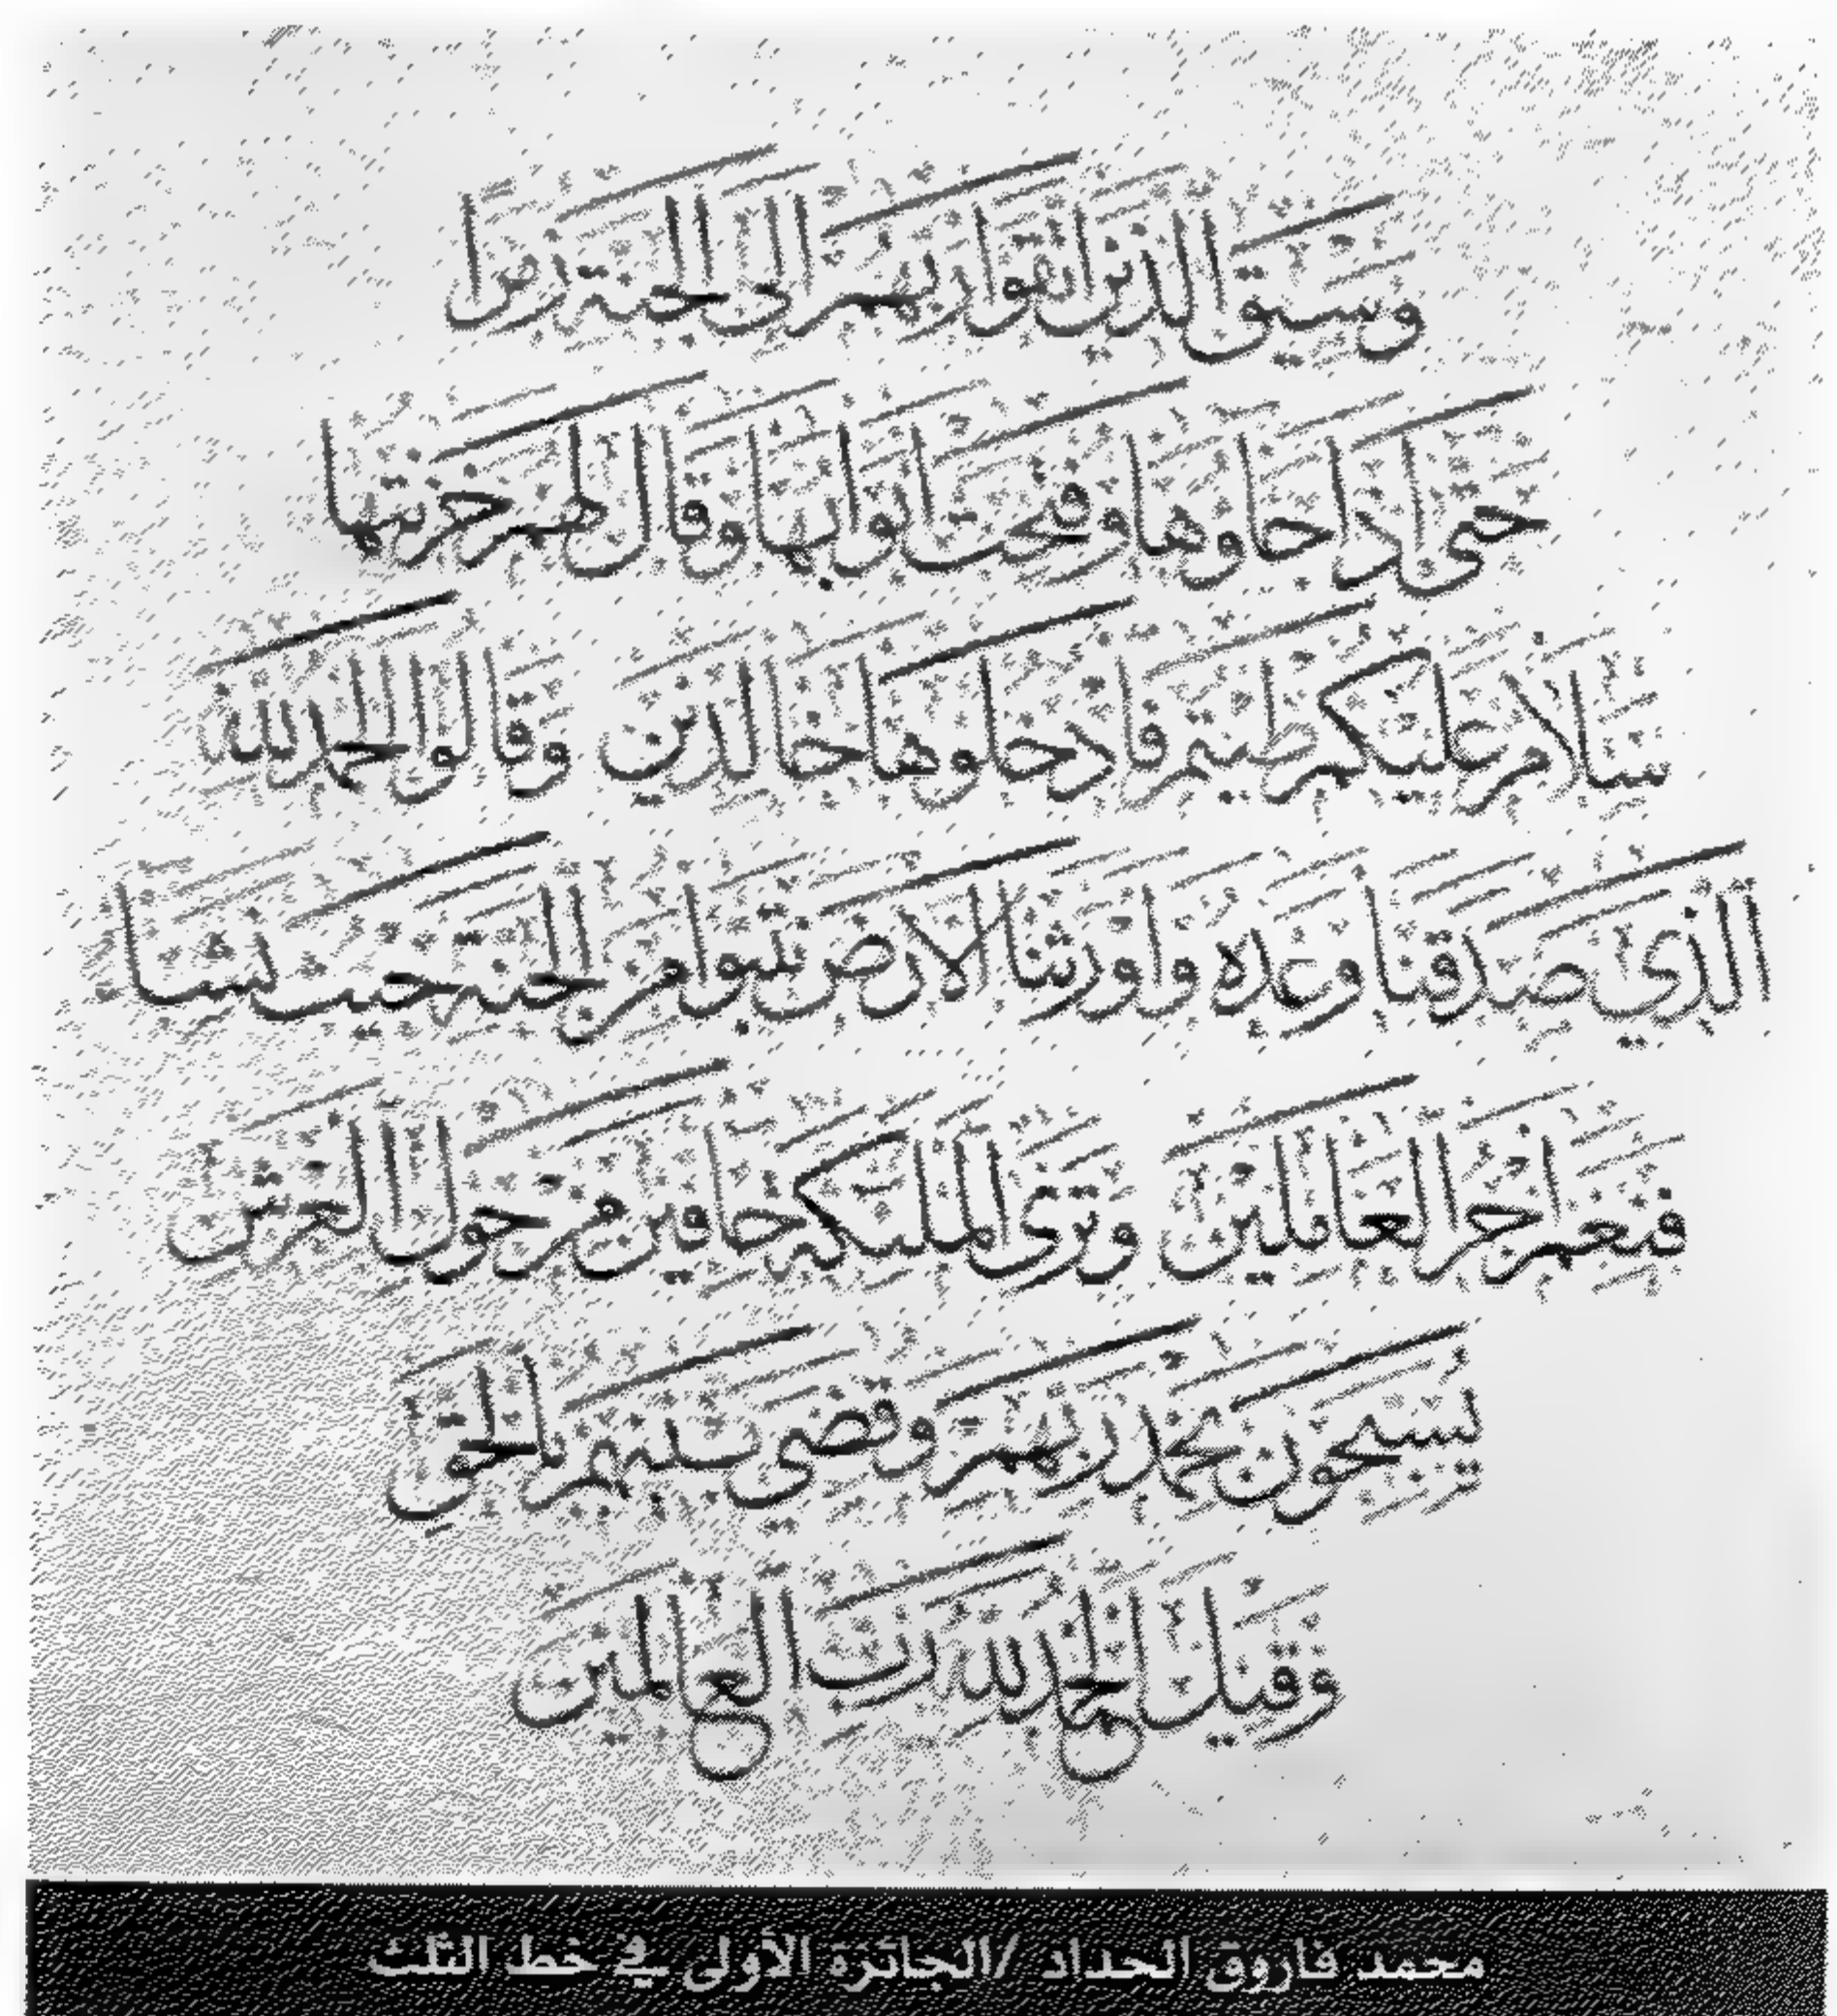 وسيق الذين اتقوا ربهم الى الجنة زمرا
حتى اذا جاؤها وفتحت ابوابها وقال لهم خزنتها
سلام عليكم طبتم فادخلوها خالدين وقالوا الحمد لله
الذي صدقنا وعده واورثنا الارض نتبوا من الجنة حيث نشا
فنعم اجر العاملين وترى الملئكة حافين من حول العرش
يسبحون بحمد ربهم وقضي بينهم بالحق
وقيل الحمد لله رب العالمين
محمد فاروق الحداد /الجائزة الأولى في خط الثلث